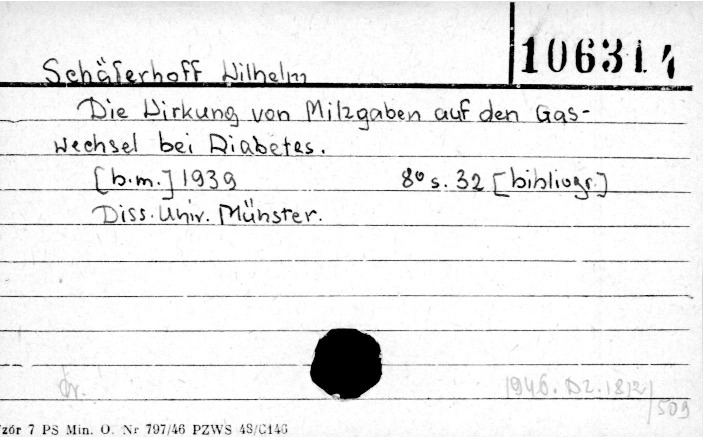 106314
Schäferhoff Wilhelm
Die Wirkung von Milzgaben auf den Gas-
wechsel bei Diabetes.
[b.m.] 1939 8° s. 32 [bibliogr.]
Diss. Univ. Münster.
dr.
1946. Dz. 1812/
509
zór 7 PS Min. O. Nr 797/46 PZWS 48/C146